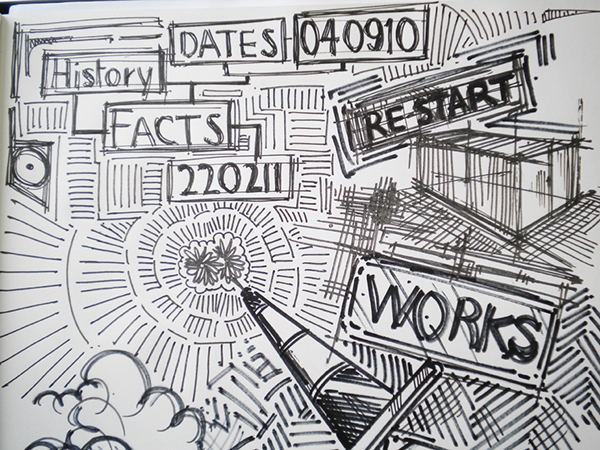 DATES 040910
History
RE START
FACTS
220211
WORKS